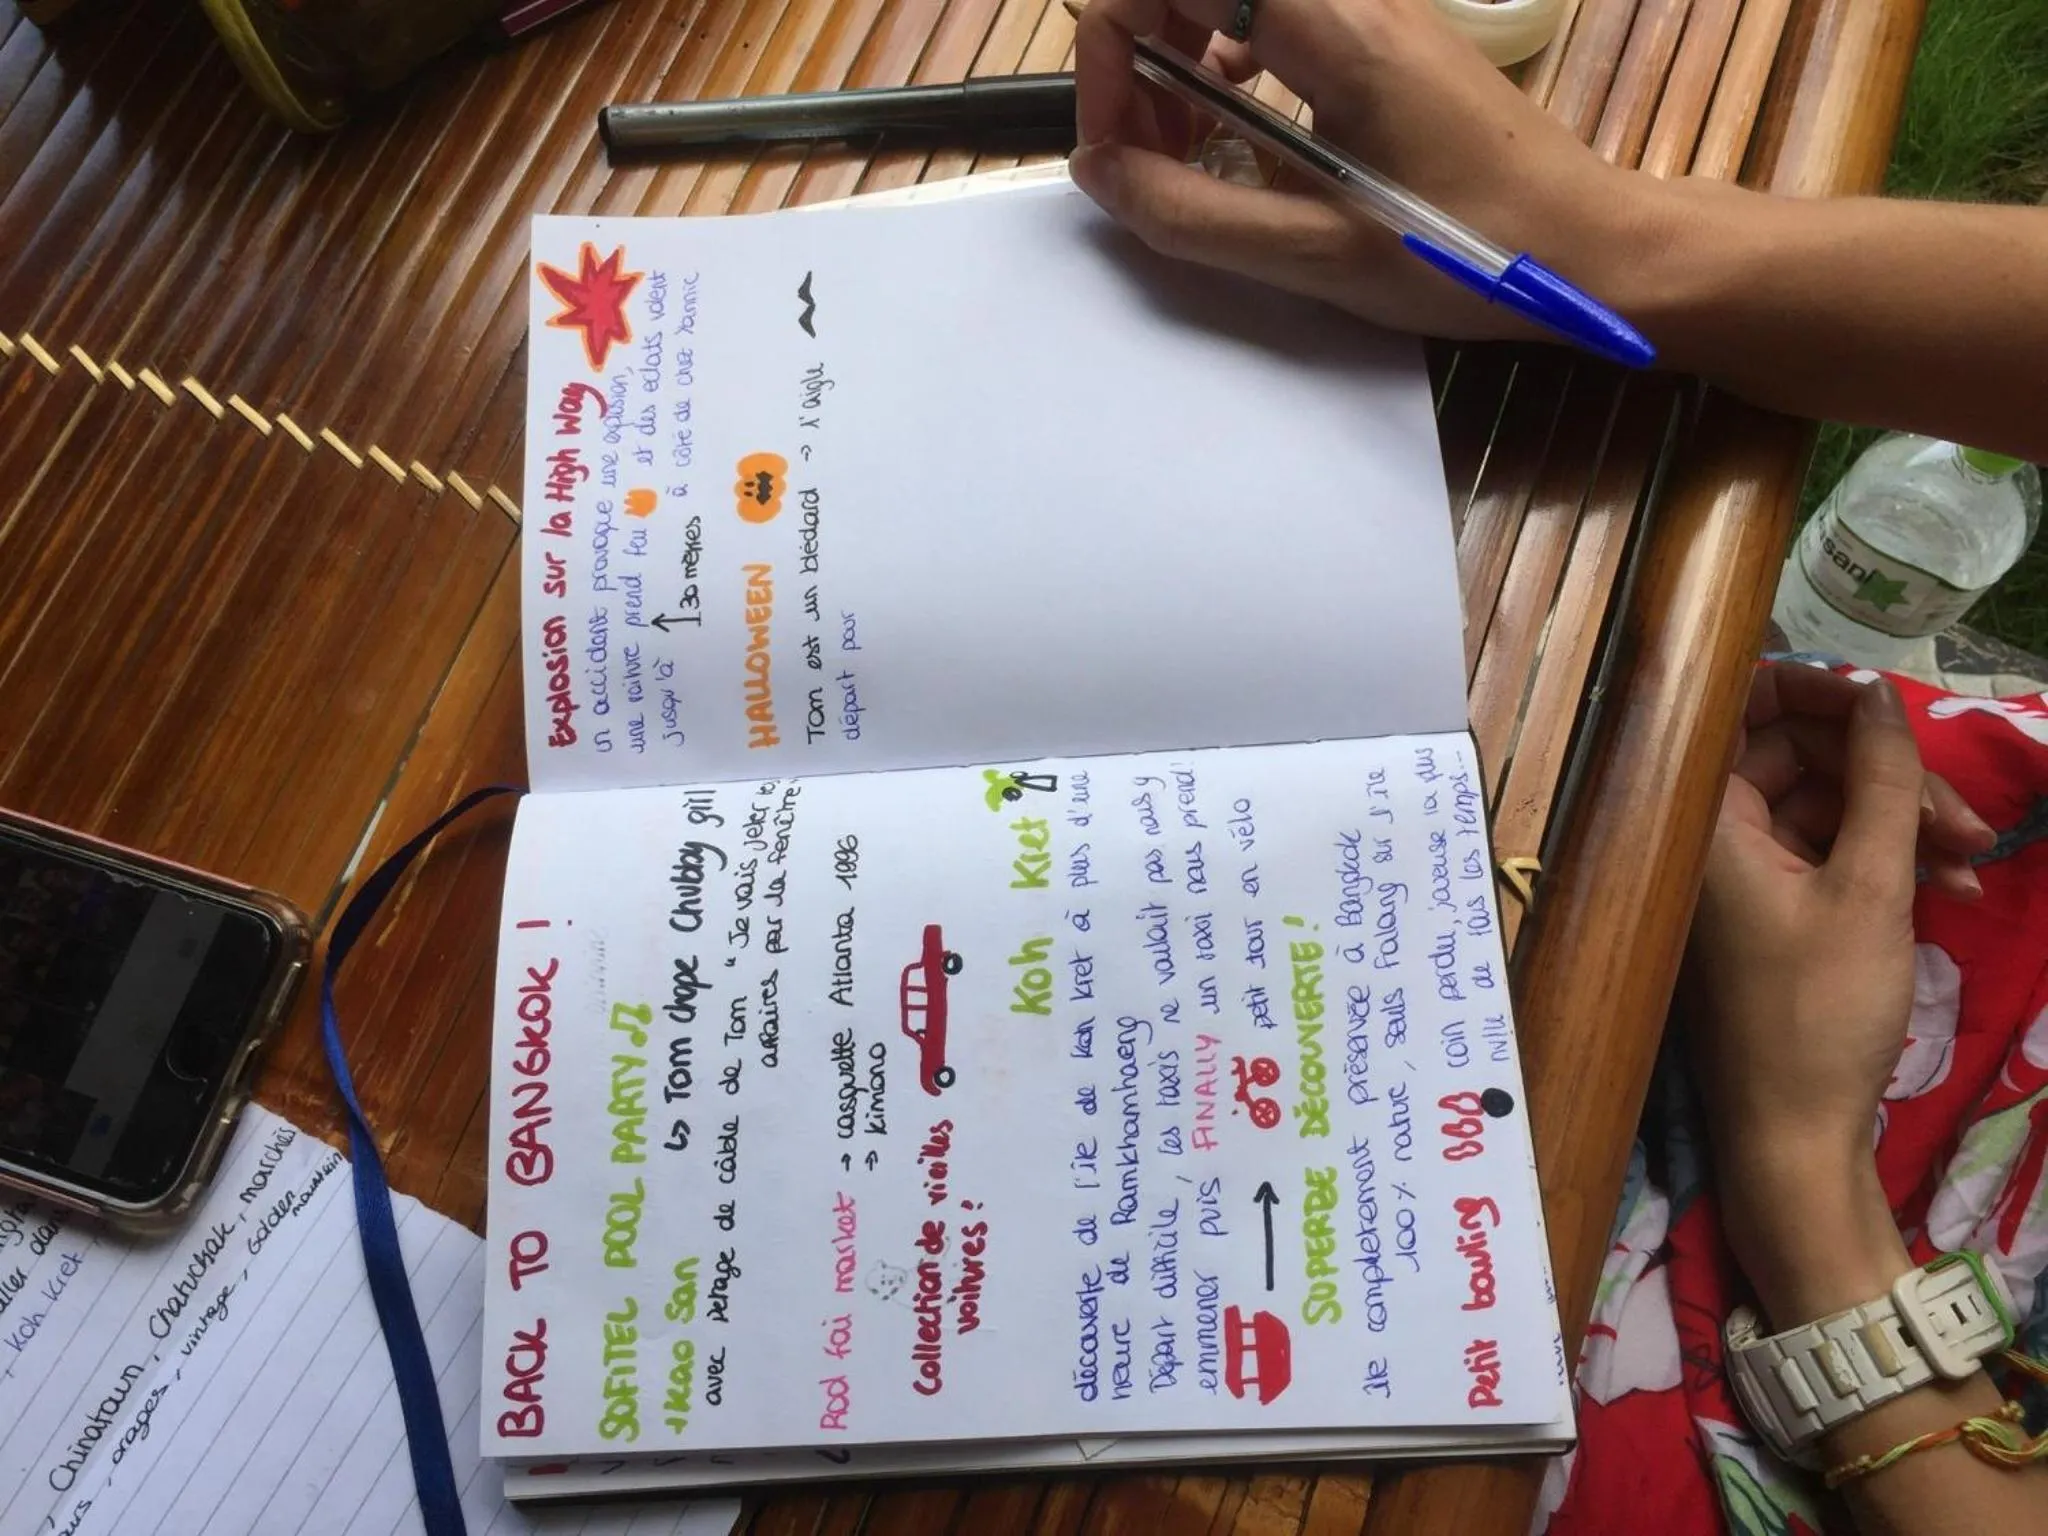 BACK TO BANGKOK !
SOFITEL POOL PARTY
+ Kao San
↳ Tom chope Chubby girl
avec pétage de câble de Tom "Je vais jeter
affaires par la fenêtre,
Rod fai market → casquette Atlanta 1996
→ kimono
Collection de vieilles
voitures !
Koh Kret
découverte de l'île de Koh Kret à plus d'une
heure de Ramkhamhaeng
Départ difficile, les taxis ne voulait pas nous y
emmener puis FINALLY un taxi nous prend!
→ petit tour en vélo
SUPERBE DÉCOUVERTE !
île complètement préservée à Bangkok
100% nature, seuls Falang sur l'île
Petit bowling
coin perdu, joueuse la plus
nulle de tous les temps...
Explosion sur la High Way
un accident provoque une explosion,
une voiture prend feu et des éclats volent
jusqu'à
30 mètres à côté de chez Yannic
HALLOWEEN
Tom est un bédard → l'aigle
départ pour
aller dan
, Koh Kret
, Chinatown, Chatuchak, marchés
ours, orages, vintage, Golden
mountain